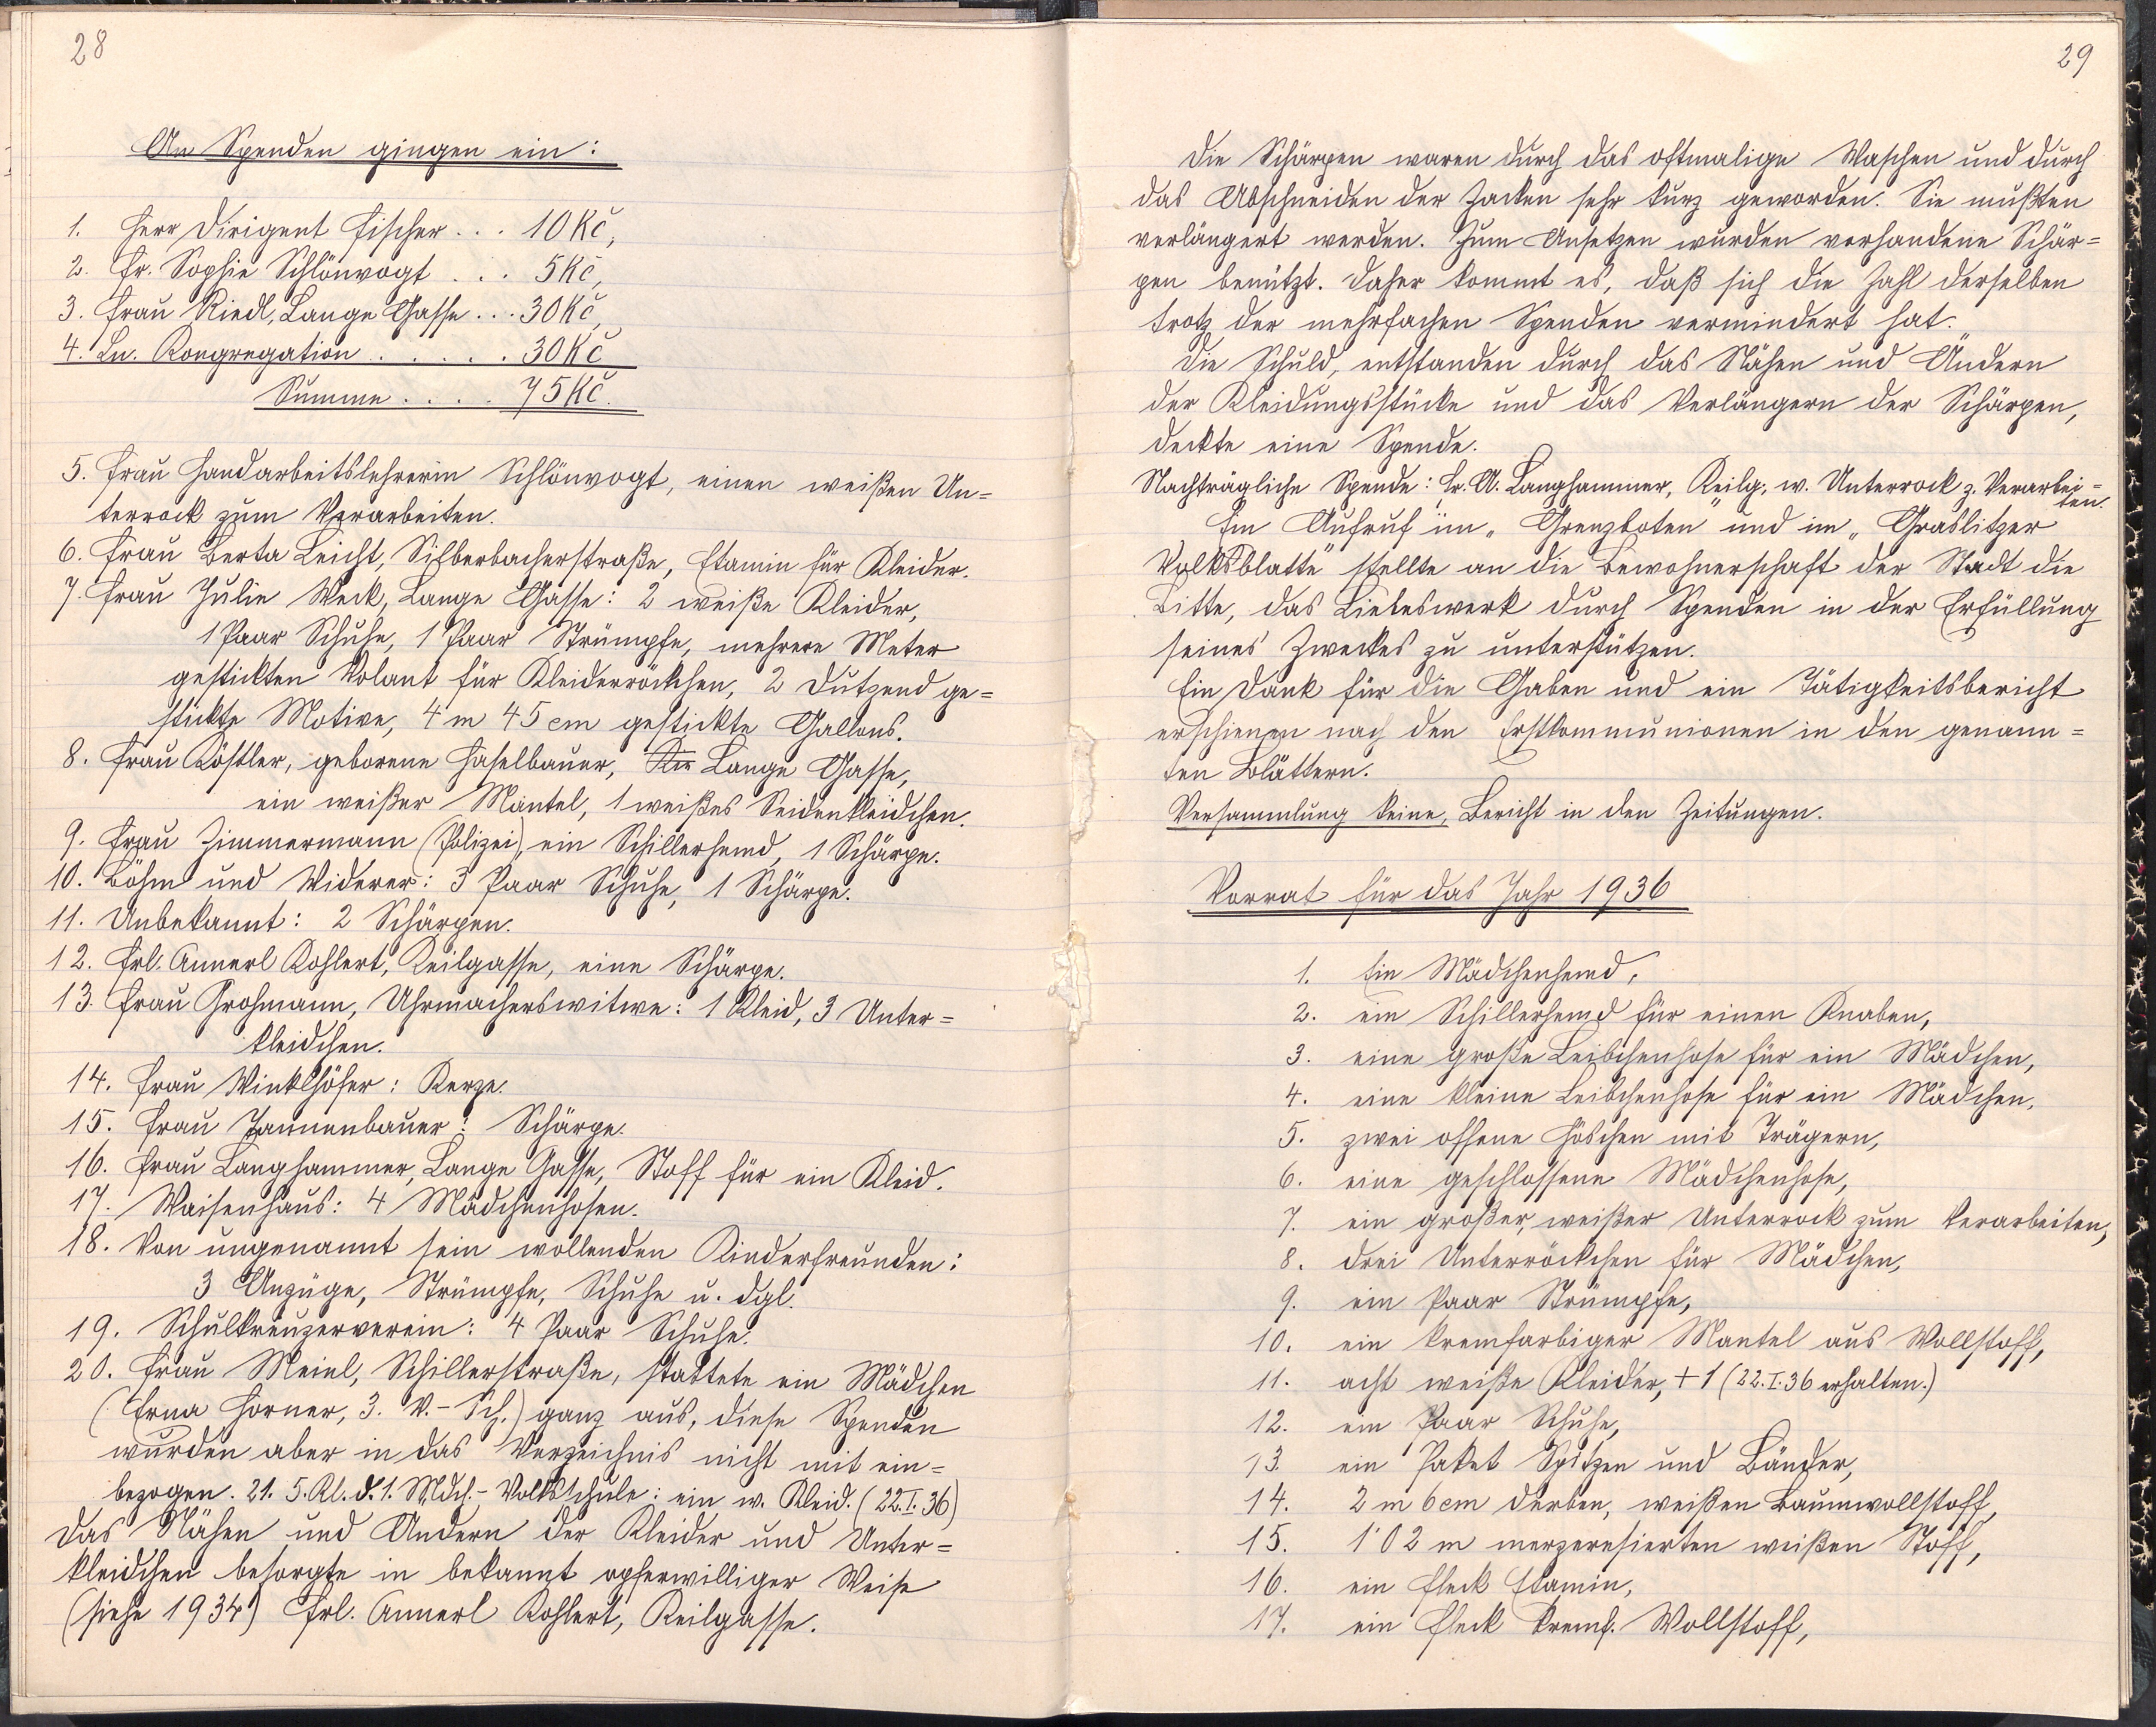 28
An Spenden gingen ein:
1. Herr Dirigent Fischer... 10 Kč,
2. Fr. Sophie Schlönvogt... 5 Kč,
3. Frau Riedl, Lange Gasse... 30 Kč,
4. Ln. Kongregation...... 30 Kč
Summe.... 75 Kč.
5. Frau Handarbeitslehrerin Schlönvogt, einen weißen Un=
terrock zum Verarbeiten.
6. Frau Berta Leicht, Silberbacherstraße, Etamin für Kleider.
7. Frau Julie Weck, Lange Gasse: 2 weiße Kleider,
1 Paar Schuhe, 1 Paar Strümpfe, mehrere Meter
gestickten Volant für Kleiderröckchen, 2 Dutzend ge=
stickte Motive, 4 m 45 cm gestickte Gallons.
8. Frau Köstler, geborene Haselbauer, Lange Gasse,
ein weißer Mantel, 1 weißes Seidenkleidchen.
9. Frau Zimmermann (Polizei), ein Schillerhemd, 1 Schärpe.
10. Böhm und Widerer: 3 Paar Schuhe, 1 Schärpe.
11. Unbekannt: 2 Schärpen.
12. Frl. Annerl Kohlert, Keilgasse, eine Schärpe.
13. Frau Grohmann, Uhrmacherswitwe: 1 Kleid, 3 Unter=
kleidchen.
14. Frau Winklhöfer: Kerze.
15. Frau Tannenbauer: Schärpe.
16. Frau Langhammer, Lange Gasse, Stoff für ein Kleid.
17. Waisenhaus: 4 Mädchenhosen.
18. Von ungenannt sein wollenden Kinderfreunden:
3 Anzüge, Strümpfe, Schuhe u. dgl.
19. Schulkreuzerverein: 4 Paar Schuhe.
20. Frau Meinl, Schillerstraße, stattete ein Mädchen
(Erna Horner, 3. V.-Sch.) ganz aus, diese Spenden
wurden aber in das Verzeichnis nicht mit ein=
bezogen. 21. 5. Kl. d. 1. Mdch.-Volksschule: ein w. Kleid. (22.I.36)
Das Nähen und Ändern der Kleider und Unter=
kleidchen besorgte in bekannt opferwilliger Weise
(siehe 1934) Frl. Annerl Kohlert, Keilgasse.
29
Die Schärpen waren durch das oftmalige Waschen und durch
das Abschneiden der Zacken sehr kurz geworden. Sie mußten
verlängert werden. Zum Ansetzen wurden vorhandene Schär=
pen benützt. Daher kommt es, daß sich die Zahl derselben
trotz der mehrfachen Spenden vermindert hat.
Die Schuld, entstanden durch das Nähen und Ändern
der Kleidungsstücke und das Verlängern der Schärpen,
deckte eine Spende.
Nachträgliche Spende: Fr. A. Langhammer, Keilg. w. Unterrock z. Verarbei=
ten.
Ein Aufruf im „Grenzboten" und im „Graslitzer
Volksblatte" stellte an die Bewohnerschaft der Stadt die
Bitte, das Liebeswerk durch Spenden in der Erfüllung
seines Zweckes zu unterstützen.
Ein Dank für die Gaben und ein Tätigkeitsbericht
erschienen nach den Erstkommunionen in den genann=
ten Blättern.
Versammlung keine, Bericht in den Zeitungen.
Vorrat für das Jahr 1936
1. Ein Mädchenhemd,
2. ein Schillerhemd für einen Knaben,
3. eine große Leibchenhose für ein Mädchen,
4. eine kleine Leibchenhose für ein Mädchen,
5. zwei offene Höschen mit Trägern,
6. eine geschlossene Mädchenhose,
7. ein großer, weißer Unterrock zum Verarbeiten,
8. drei Unterröckchen für Mädchen,
9. ein Paar Strümpfe,
10. ein kremfarbiger Mantel aus Wollstoff,
11. acht weiße Kleider, + 1 (22.I.36 erhalten.)
12. ein Paar Schuhe,
13. ein Paket Spitzen und Bänder,
14. 2 m 6 cm derben, weißen Baumwollstoff,
15. 1'02 m merzeresierten weißen Stoff,
16. ein Fleck Etamin,
17. ein Fleck kremf. Wollstoff,